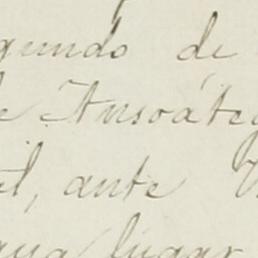 gundo de
e Ansoáteg
el, ante
lugar